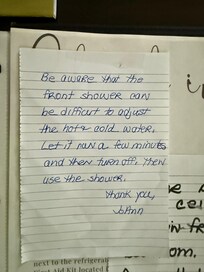 Be aware that the
front shower can
be difficult to adjust
the hot & cold water.
Let it run a few minutes
and then turn off, then
use the shower.
Thank you,
next to the refrigerat
irst Aid Kit located